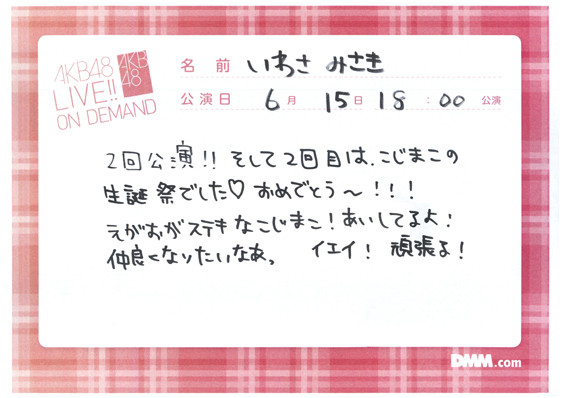 AKB48
LIVE!!
ON DEMAND
AKB
48
名 前 いわさ みさき
公演日 6月 15日 18:00 公演
2回公演!! そして2回目は、こじまこの
生誕祭でした♡ おめでとう〜!!!
えがおがステキなこじまこ!あいしてるよ!
仲良くなりたいなあ。 イエイ! 頑張る!
DMM.com